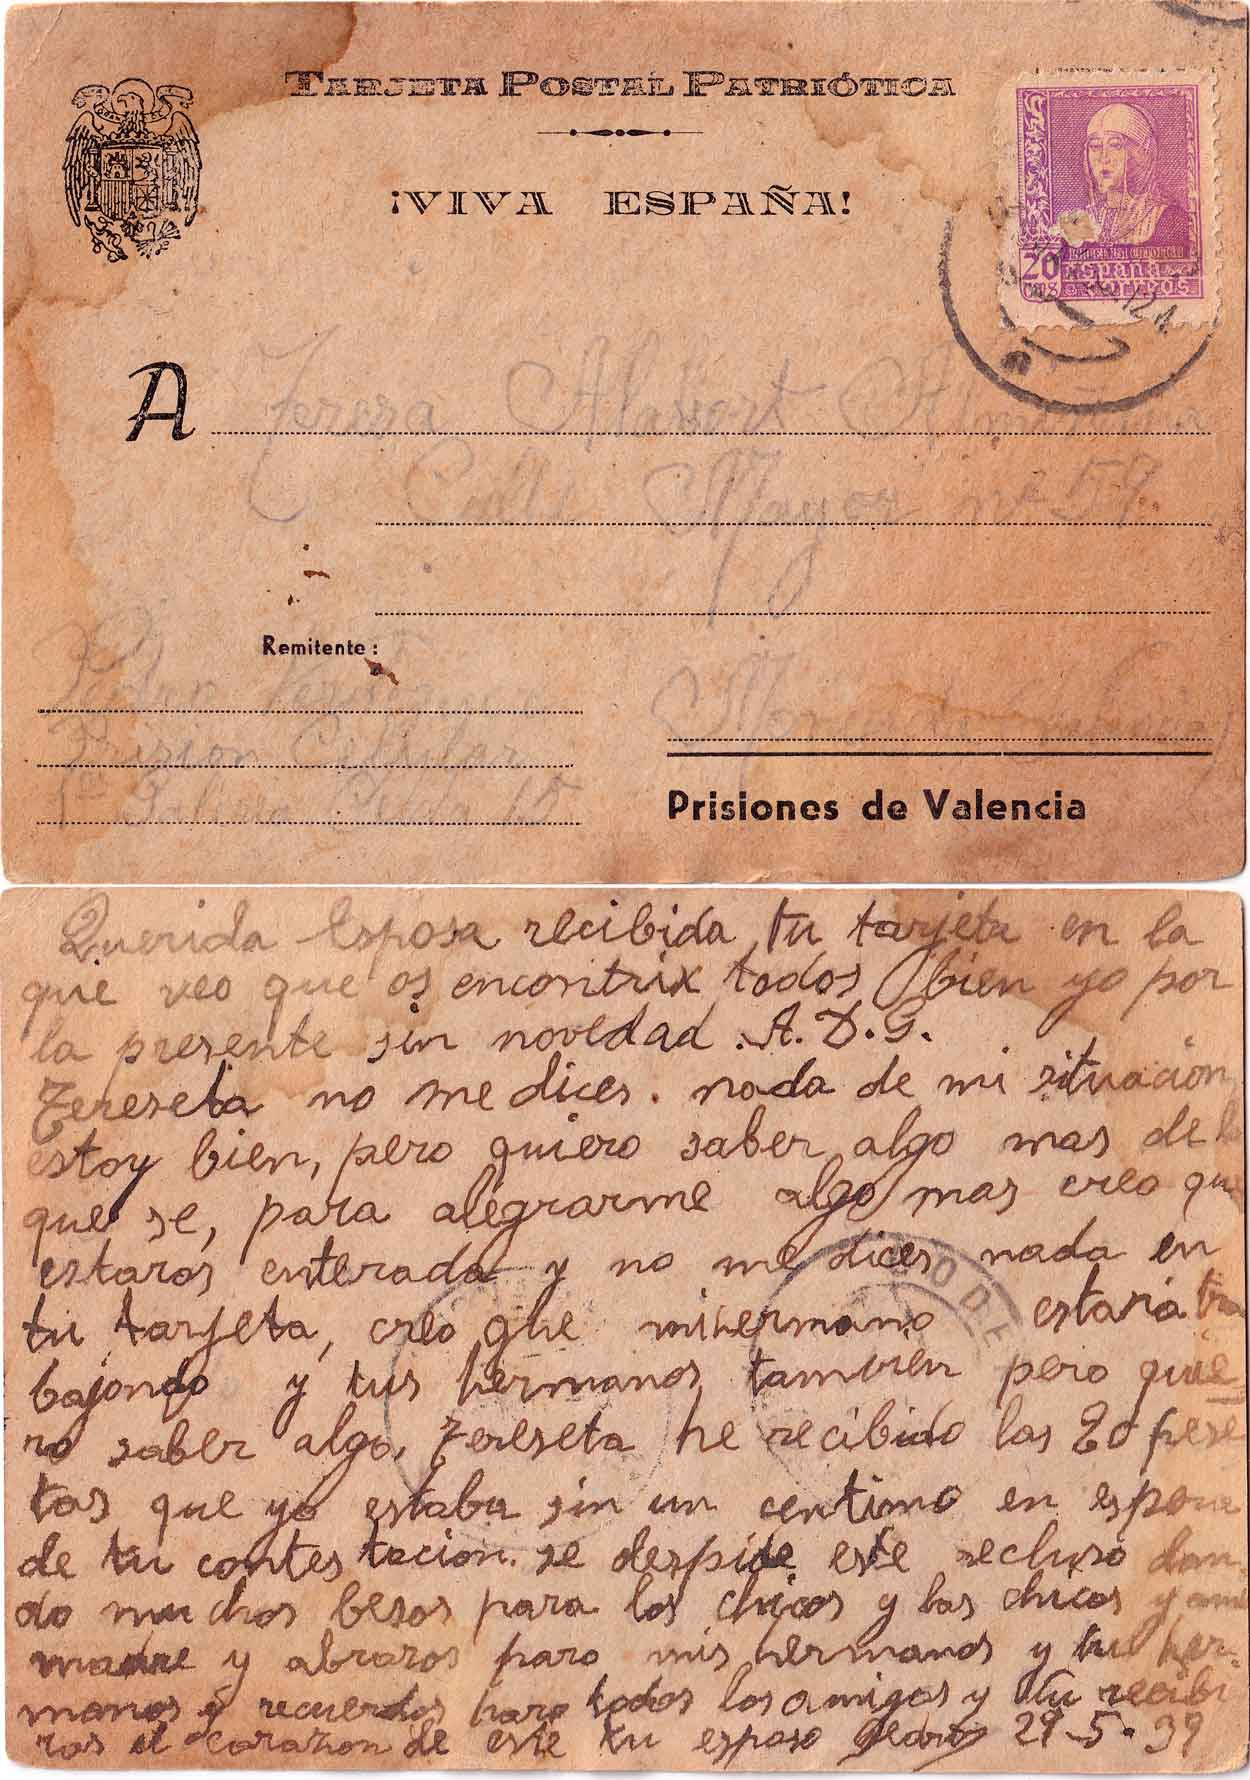 TARJETA POSTAL PATRIÓTICA
¡VIVA ESPAÑA!
20 CTS
España
Correos
A Teresa Alabort
Calle Mayor nº 59
Remitente:
Prision Celular
1ª Galeria Celda 15
Prisiones de Valencia
Querida Esposa recibida tu tarjeta en la
que veo que os encontrix todos bien yo por
la presente sin novedad. A. D. G.
Tereseta no me dices. nada de mi situacion
estoy bien, pero quiero saber algo mas de lo
que se, para alegrarme algo mas creo que
estaras enterada y no me dices nada en
tu tarjeta, creo que mi hermano estaria tra
bajando y tus hermanos tambien pero quie
ro saber algo, Tereseta he recibido las 20 pese
tas que yo estaba sin un centimo en espera
de tu contestacion. se despide este recluso dan
do muchos besos para los chicos y las chicas y a mi
madre y abrazos para mis hermanos y tu her-
manos y recuerdos para todos los amigos y tu recibi
ras el corazon de este tu esposo 29-5-39